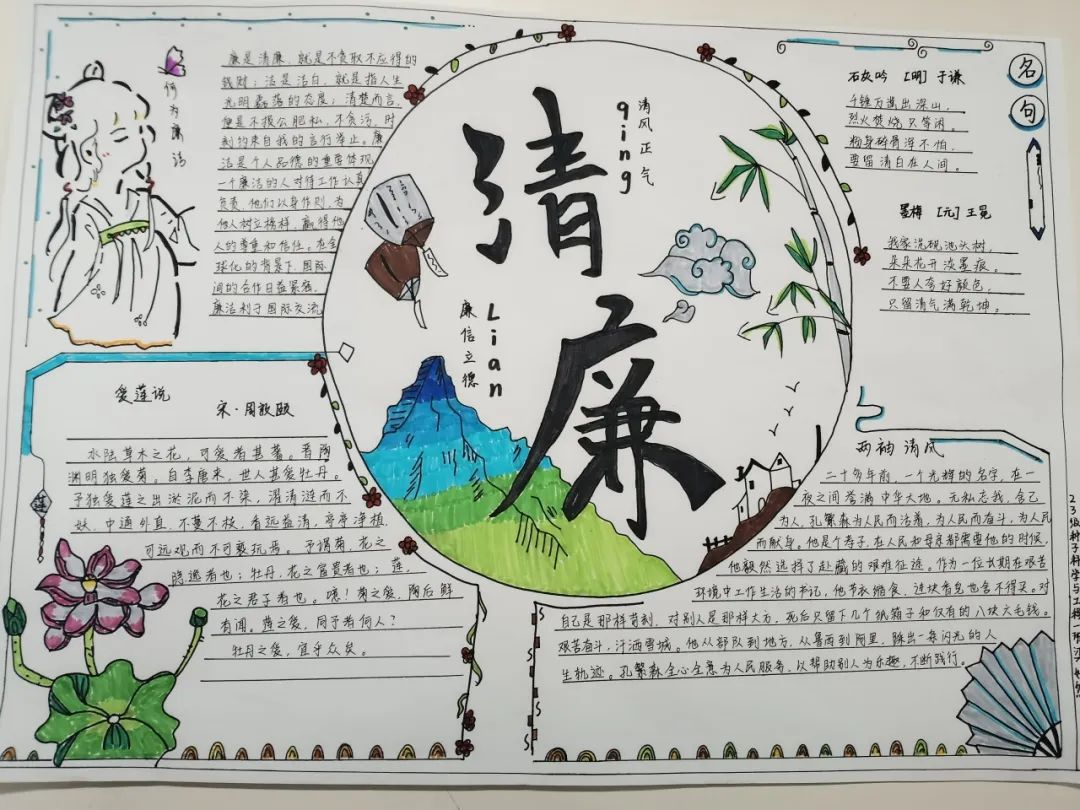 何为廉洁
廉是清廉，就是不贪取不应得的
钱财；洁是洁白，就是指人生
光明磊落的态度；清楚而言，
便是不损公肥私，不贪污，时
刻约束自我的言行举止。廉
洁是个人品德的重要体现
一个廉洁的人对待工作认真
负责，他们以身作则，为
他人树立榜样，赢得他
人的尊重和信任。在全
球化的背景下，国际
间的合作日益紧密，
廉洁利于国际交流
清风正气
qing
清
廉
Lian
廉信立德
名句
石灰吟 [明]于谦
千锤万凿出深山，
烈火焚烧只等闲。
粉身碎骨浑不怕，
要留清白在人间。
墨梅 [元]王冕
我家洗砚池头树，
朵朵花开淡墨痕。
不要人夸好颜色，
只留清气满乾坤。
爱莲说
宋·周敦颐
水陆草木之花，可爱者甚蕃。晋陶
渊明独爱菊。自李唐来，世人甚爱牡丹。
予独爱莲之出淤泥而不染，濯清涟而不
妖，中通外直，不蔓不枝，香远益清，亭亭净植，
可远观而不可亵玩焉。予谓菊，花之
隐逸者也；牡丹，花之富贵者也；莲，
花之君子者也。噫！菊之爱，陶后鲜
有闻。莲之爱，同予者何人？
牡丹之爱，宜乎众矣。
莲
两袖清风
二十多年前，一个光辉的名字，在一
夜之间誉满中华大地。无私忘我，舍己
为人，孔繁森为人民而活着，为人民而奋斗，为人民
而献身。他是个孝子，在人民和母亲都需要他的时候，
他毅然选择了赴藏的艰难征途。作为一位长期在艰苦
环境中工作生活的书记，他节衣缩食，连块香皂也舍不得买。对
自己是那样苛刻，对别人是那样大方，死后只留下几个纸箱子和仅有的八块六毛钱。
艰苦奋斗，汗洒雪域。他从部队到地方，从鲁西到阿里，踩出一条闪光的人
生轨迹。孔繁森全心全意为人民服务，以帮助别人为乐趣，不断践行。
23级种子科学与工程一班